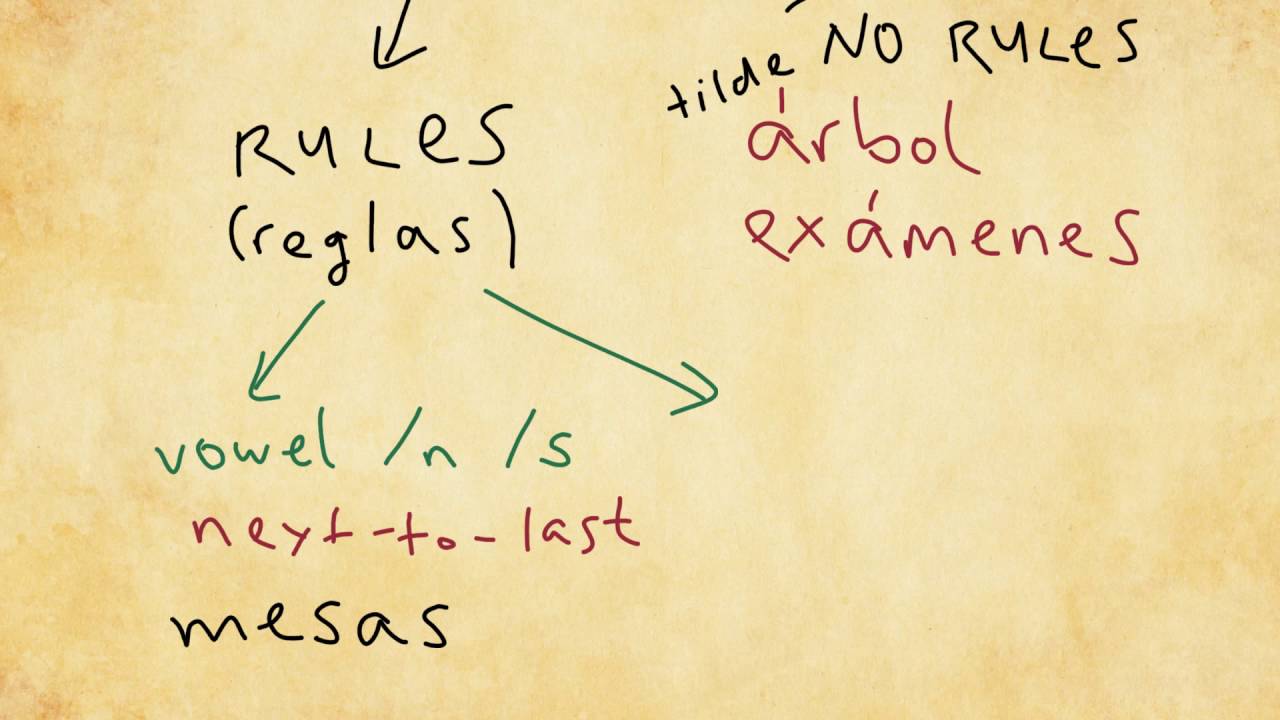 RULES
(reglas)
vowel /n /s
next-to-last
mesas
NO RULES
tilde
árbol
exámenes